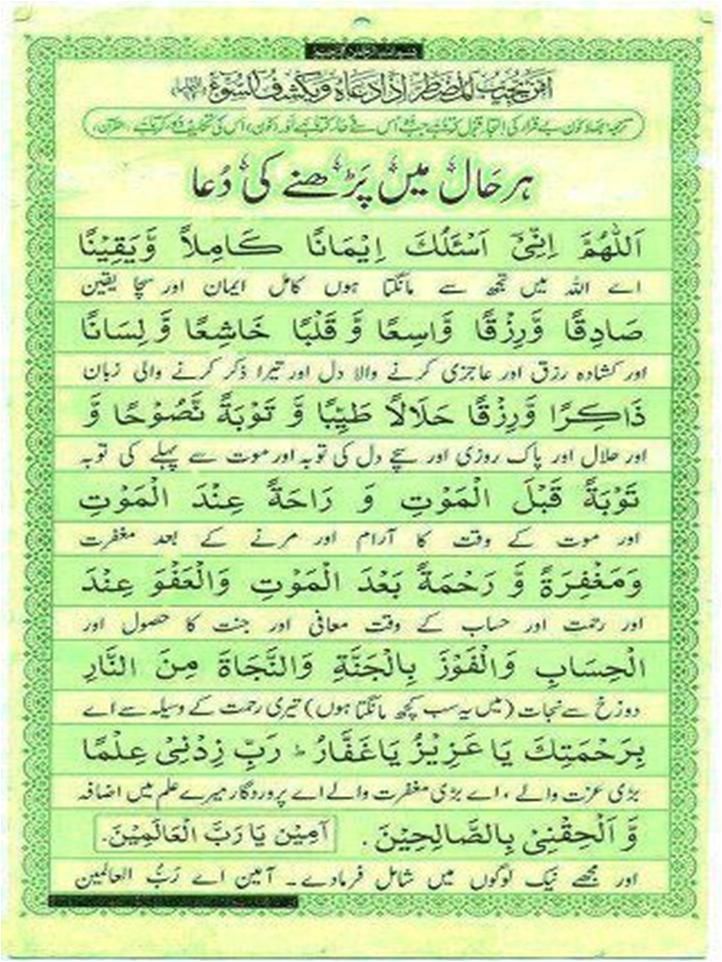 اَمَّنْ يُّجِيْبُ الْمُضْطَرَّ اِذَا دَعَاهُ وَيَكْشِفُ السُّوْٓءَ
ترجمہ: بھلا کون بے قرار کی التجا قبول کرتا ہے جب وہ اُس سے دعا کرتا ہے اور (کون) اس کی تکلیف دور کرتا ہے (القرآن)
ہر حَال میں پَڑھنے کی دُعا
اَللّٰهُمَّ اِنِّیْٓ اَسْئَلُكَ اِیْمَانًا كَامِلاً وَّیَقِیْنًا
اے اللہ میں تجھ سے مانگتا ہوں کامل ایمان اور سچا یقین
صَادِقًا وَّرِزْقًا وَّاسِعًا وَّ قَلْبًا خَاشِعًا وَّ لِسَانًا
اور کشادہ رزق اور عاجزی کرنے والا دل اور تیرا ذکر کرنے والی زبان
ذَاكِرًا وَّرِزْقًا حَلَالاً طَیِّبًا وَّ تَوْبَةً نَّصُوْحًا وَّ
اور حلال اور پاک روزی اور سچے دل کی توبہ اور موت سے پہلے کی توبہ
تَوْبَةً قَبْلَ الْمَوْتِ وَ رَاحَةً عِنْدَ الْمَوْتِ
اور موت کے وقت کا آرام اور مرنے کے بعد مغفرت
وَمَغْفِرَةً وَّ رَحْمَةً بَعْدَ الْمَوْتِ وَالْعَفْوَ عِنْدَ
اور رحمت اور حساب کے وقت معافی اور جنت کا حصول اور
الْحِسَابِ وَالْفَوْزَ بِالْجَنَّةِ وَالنَّجَاةَ مِنَ النَّارِ
دوزخ سے نجات (میں یہ سب کچھ مانگتا ہوں) تیری رحمت کے وسیلہ سے اے
بِرَحْمَتِكَ یَا عَزِیْزُ یَا غَفَّارُ ؕ رَبِّ زِدْنِیْ عِلْمًا
بڑی عزت والے ، اے بڑی مغفرت والے اے پروردگار میرے علم میں اضافہ
وَّ اَلْحِقْنِیْ بِالصَّالِحِیْنَ. آمِیْن یَا رَبَّ الْعَالَمِیْنَ.
اور مجھے نیک لوگوں میں شامل فرمادے۔ آمین اے رَبُّ العالمین